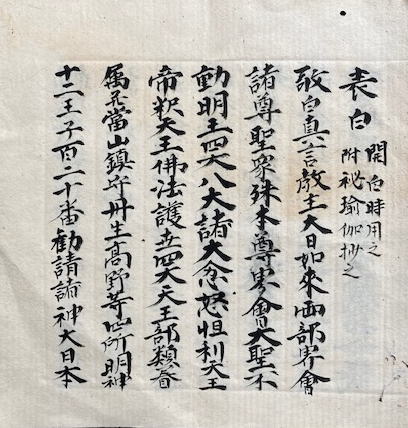 表白
開白時用之
附秘瑜伽抄之
敬白真言教主大日如来両部界會
諸尊聖衆殊本尊界會大聖不
動明王四大八大諸大忿怒怛利天王
帝釈天王佛法護世四大天王部類眷
属惣當山鎮守丹生高野等四所明神
十二王子百二十番勧請諸神大日本